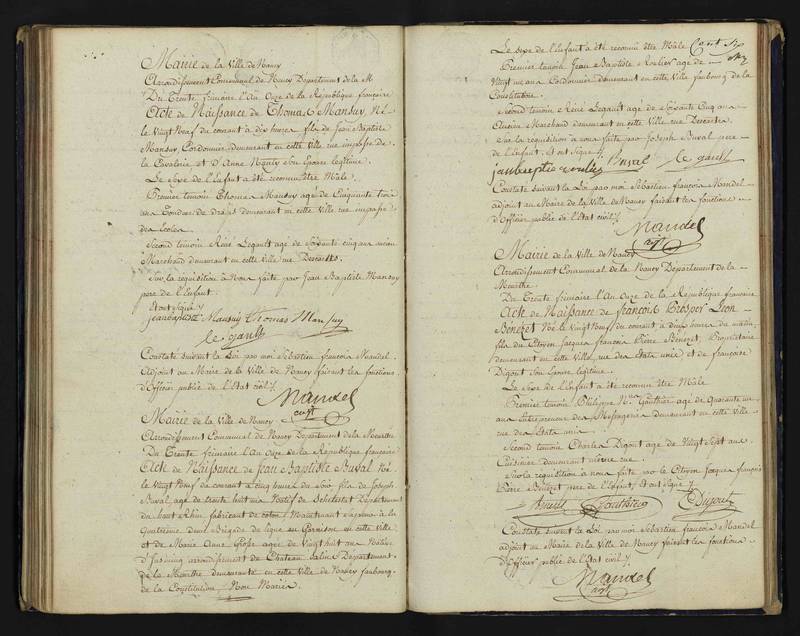 Mairie de la Ville de Nancy
Arrondissement Communal de Nancy Département de la M
Du Trente frimaire l'An Onze de la République françoise
Acte de Naissance de Thomas Mansuy, Né
le Vingt Neuf du courant à dix heures fils de Jean Baptiste
Mansuy Cordonnier demeurant en cette Ville rue impasse de
la Cavalerie et d'Anne Son Epouse légitime.
Le Sexe de l'Enfant a été reconnu être Mâle.
Premier temoin Thomas Mansuy agé de Cinquante trois
ans Tondeur de Draps demeurant en cette Ville rue impasse
des Ecoles
Second temoin René Legault agé de Soixante cinq ans ancien
Marchand demeurant en cette Ville rue Descartes.
Sur la requisition à Nous faite par Jean Baptiste Mansuy
pere de l'Enfant.
Et ont signé
jeanbaptiste Mansuy Thomas Mansuy
le gault
Constaté suivant la Loi par moi Sébastien françois Mandel
Adjoint au Maire de la Ville de Nancy faisant les fonctions
d'Officier public de l'Etat civil
Mandel
adjt
Mairie de la Ville de Nancy
Arrondissement Communal de Nancy Département de la Meurthe
Du Trente frimaire l'An Onze de la République françoise
Acte de Naissance de Jean Baptiste Buval Né
le Vingt Neuf du courant à cinq heures du Soir fils de Joseph
Buval agé de trente huit ans Natif de Schelestat Département
du haut Rhin fabricant de coton Maintenant à la
Quatrième demi Brigade de ligne en Garnison en cette Ville
et de Marie Anne agée de Vingt huit ans Native
d' arrondissement de Chateau Salins Département
de la Meurthe demeurante en cette Ville de Nancy faubourg
de la Constitution Non Mariés.
Le sexe de l'Enfant a été reconnu être Mâle
Premier temoin Jean Baptiste Roulier agé de
Vingt ans Cordonnier demeurant en cette Ville faubourg de la
Constitution.
Second temoin René Legault agé de Soixante Cinq ans
Ancien Marchand demeurant en cette Ville rue Descartes
Sur la requisition à nous faite par Joseph Buval pere
de l'Enfant. Et ont Signé
jean baptiste roulier Buval le gault
Constaté suivant la Loi par moi Sébastien françois Mandel
adjoint au Maire de la Ville de Nancy faisant les fonctions
d'Officier public de l'Etat civil
Mandel
adjt
Mairie de la Ville de Nancy
Arrondissement Communal de Nancy Département de la
Meurthe
Du Trente frimaire l'An Onze de la République françoise
Acte de Naissance de françois Prosper Léon
Bénezet Né le Vingt Neuf du courant à dix heures du matin
fils du Citoyen Jacques françois Pierre Bénezet, Propriétaire
demeurant en cette Ville, rue des Etats unis et de françoise
Digout Son Epouse légitime.
Le Sexe de l'Enfant a été reconnu être Mâle
Premier temoin Philippe Nas Gauthier agé de Quarante un
ans Entrepreneur des Messageries demeurant en cette Ville
rue des Etats unis
Second temoin Charles Digout agé de Vingt Sept ans
Cuisinier demeurant même rue.
Sur la requisition à nous faite par le Citoyen Jacques françois
Pierre Bénezet pere de l'Enfant, Et ont signé
Gauthier Digout
Constaté suivant la Loi par moi Sébastien françois Mandel
adjoint au Maire de la Ville de Nancy faisant les fonctions
d'Officier public de l'Etat civil
Mandel
adjt